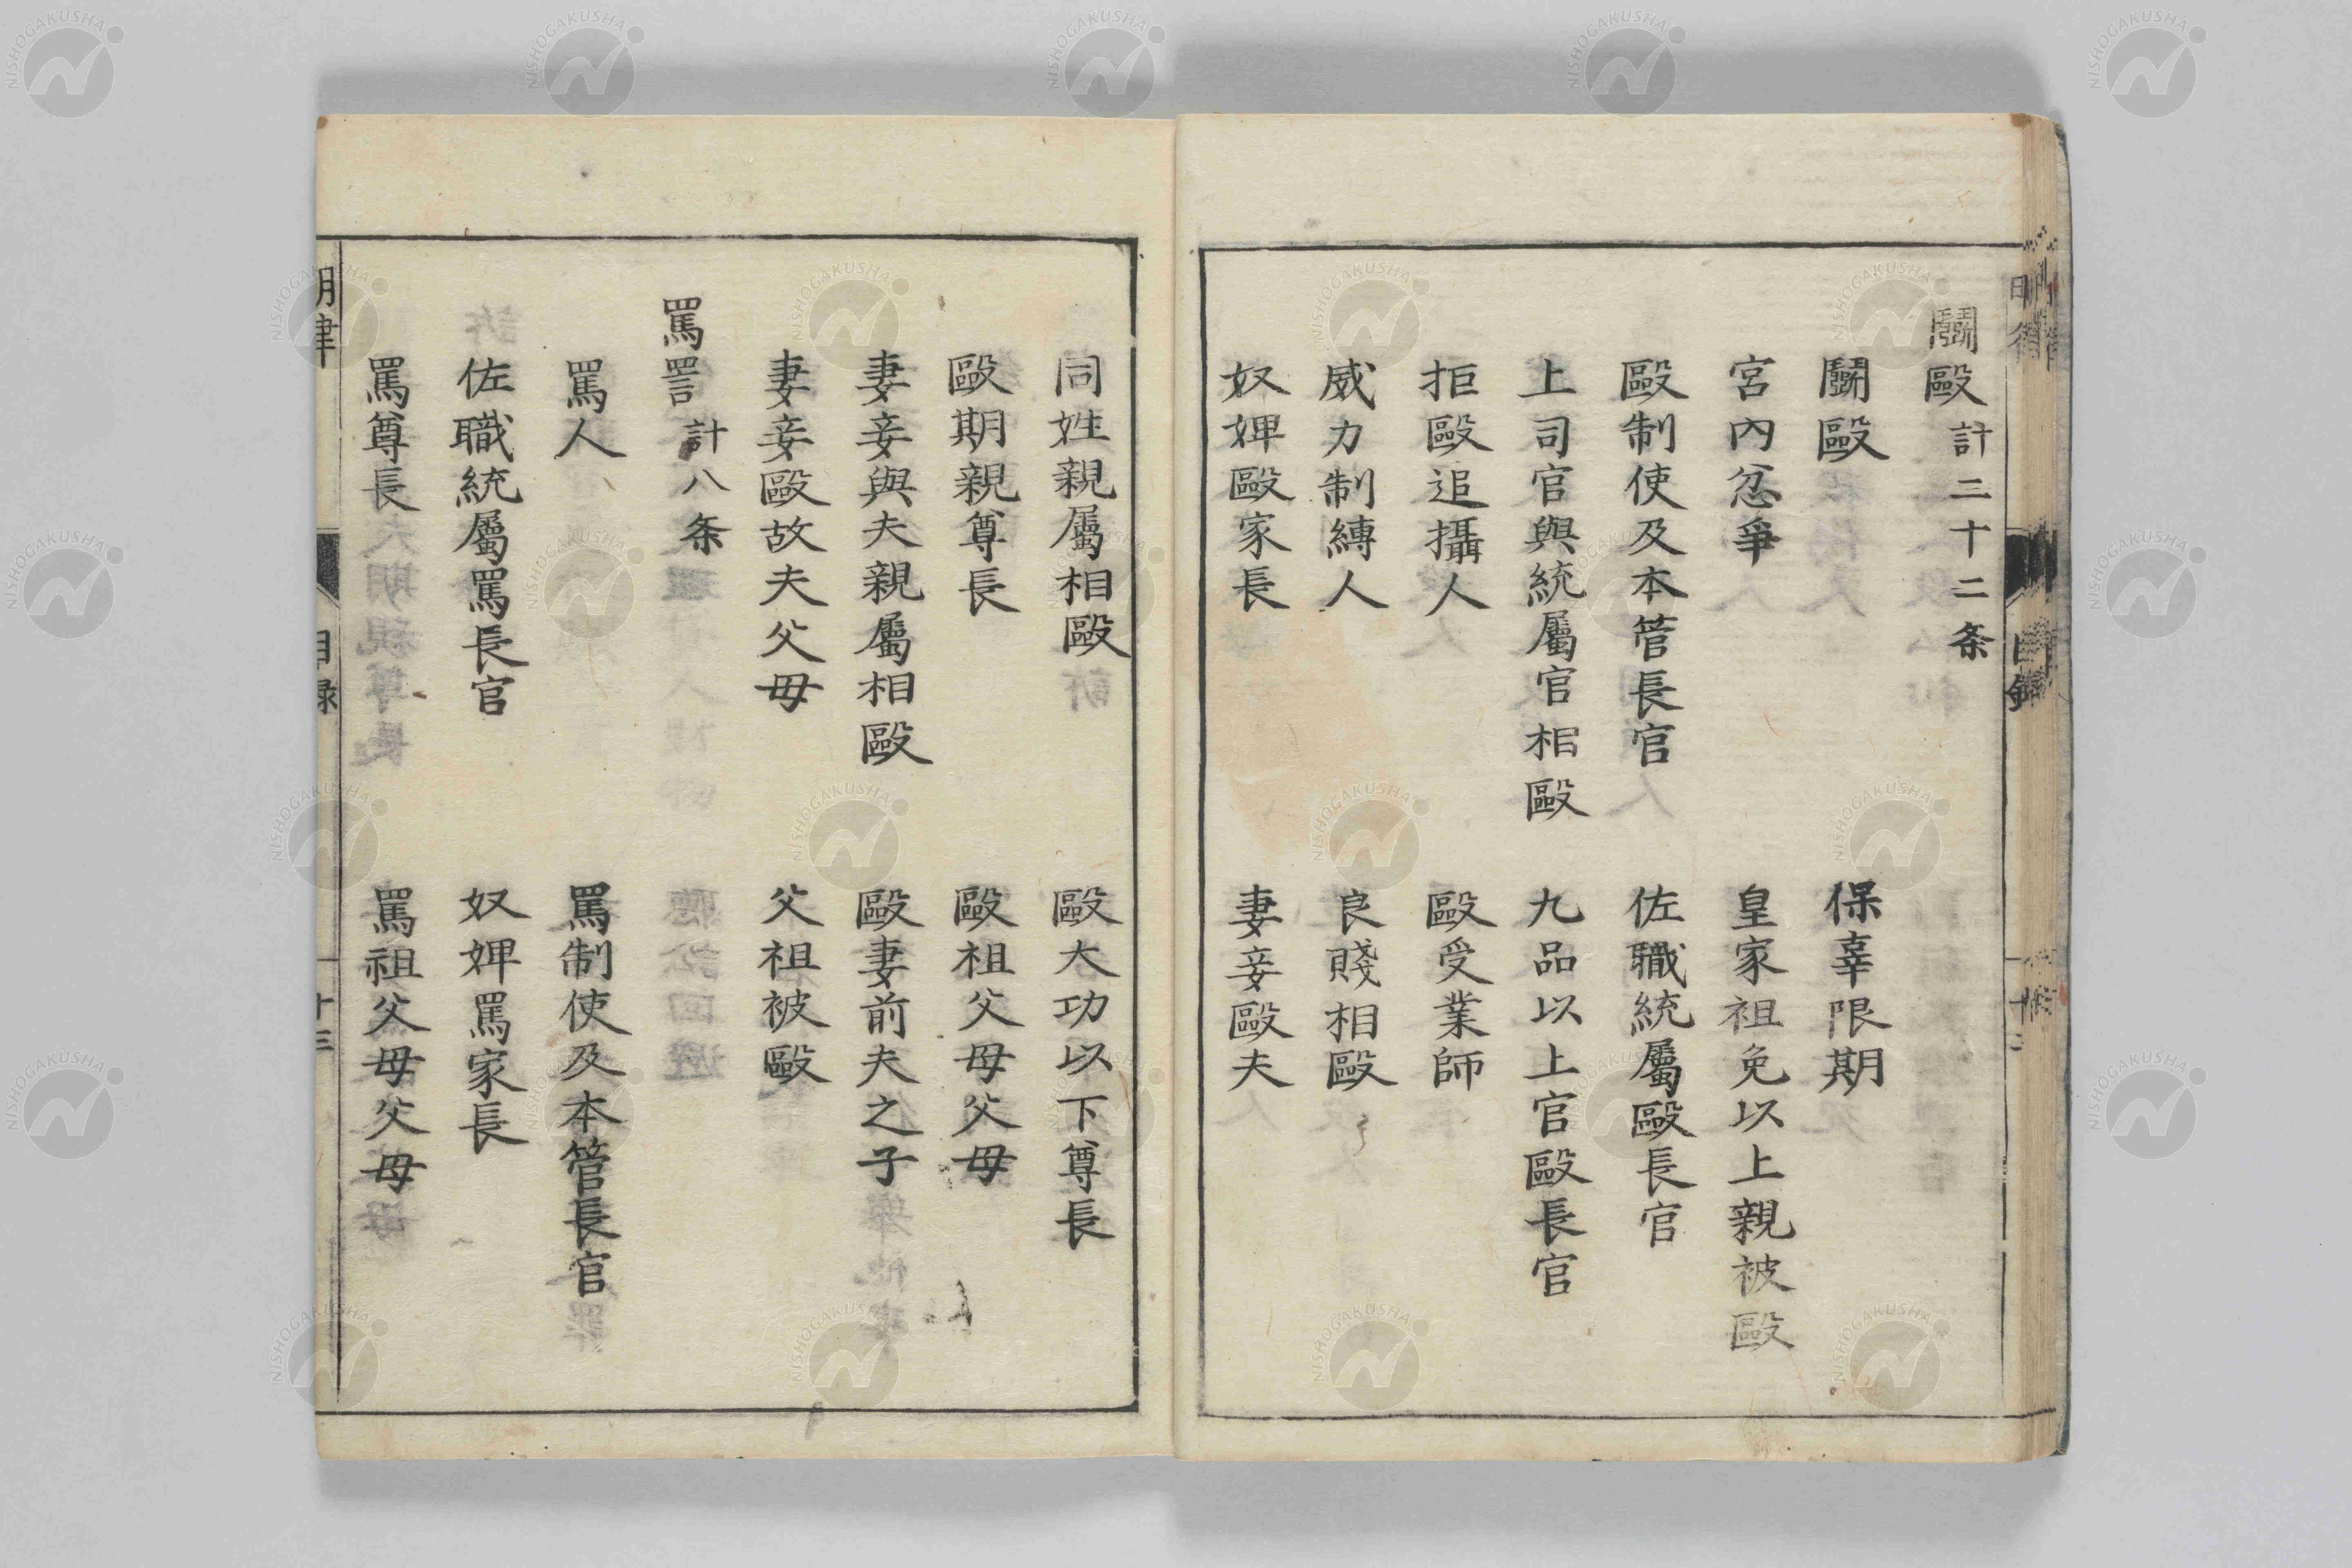 鬭毆計三十二条
鬭毆
保辜限期
宮內忿爭
皇家祖免以上親被毆
毆制使及本管長官
佐職統屬毆長官
上司官與統屬官相毆
九品以上官毆長官
拒毆追攝人
毆受業師
威力制縛人
良賤相毆
奴婢毆家長
妻妾毆夫
同姓親屬相毆
毆大功以下尊長
毆期親尊長
毆祖父母父母
妻妾與夫親屬相毆
毆妻前夫之子
妻妾毆故夫父母
父祖被毆
罵詈計八条
罵人
罵制使及本管長官
佐職統屬罵長官
奴婢罵家長
罵尊長
罵祖父母父母
明律
目録
十三
NISHOGAKUSHA